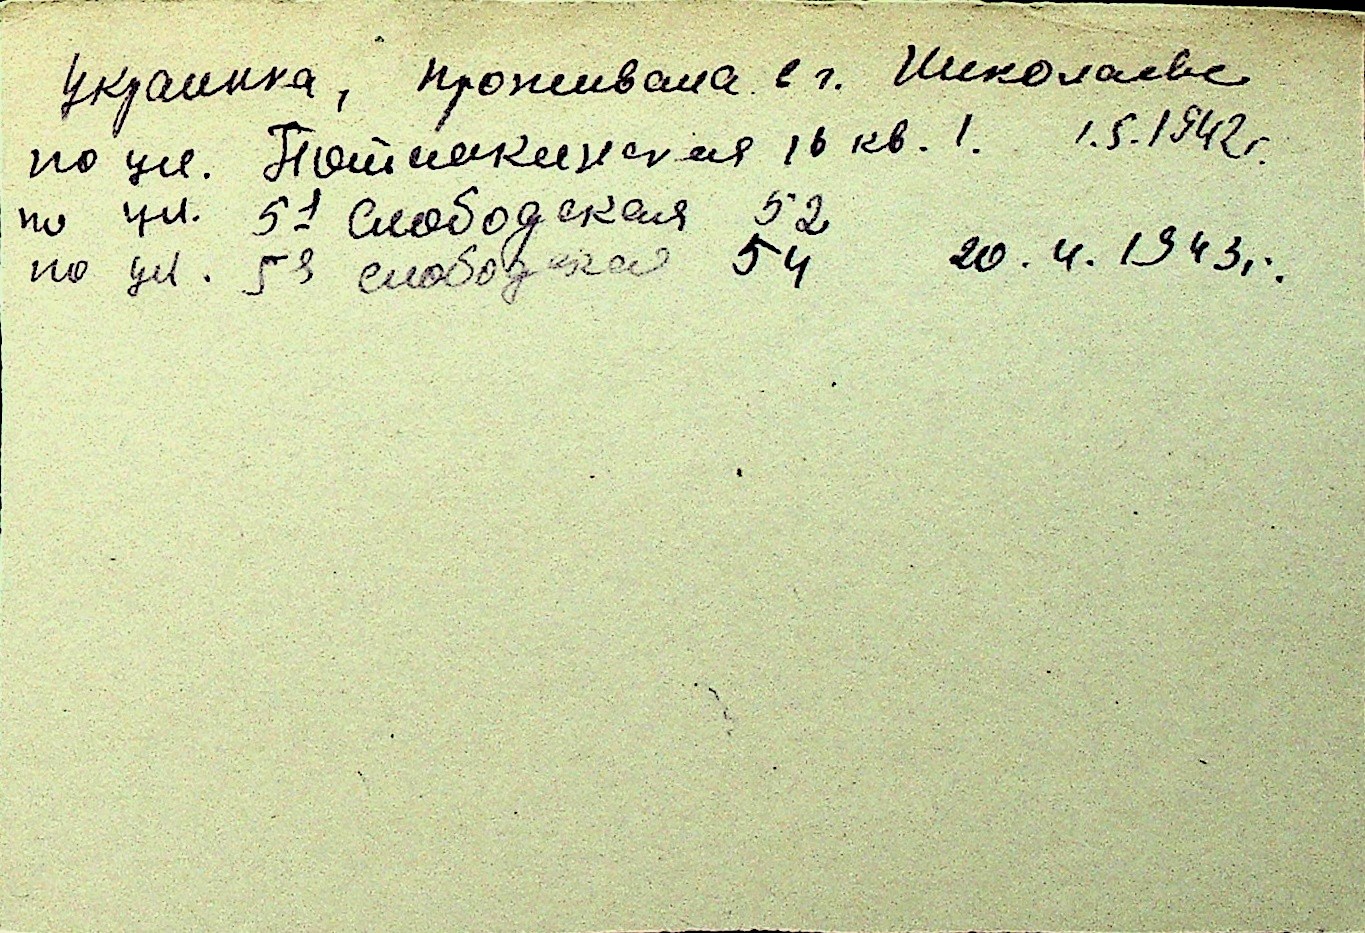 украинка, проживала в г. Николаеве
по ул. Потемкинская 16 кв. 1. 1.5.1942г.
по ул. 5я Слободская 52
по ул. 5я слободская 54 20.4.1943г.